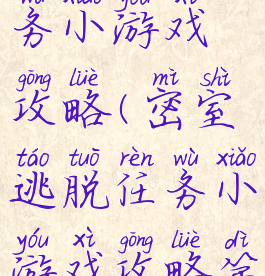 wù xiǎo yóu xì
务小游戏
gōng lüè mì shì
攻略(密室
táo tuō rèn wù xiǎo
逃脱任务小
yóu xì gōng lüè dì
游戏攻略第